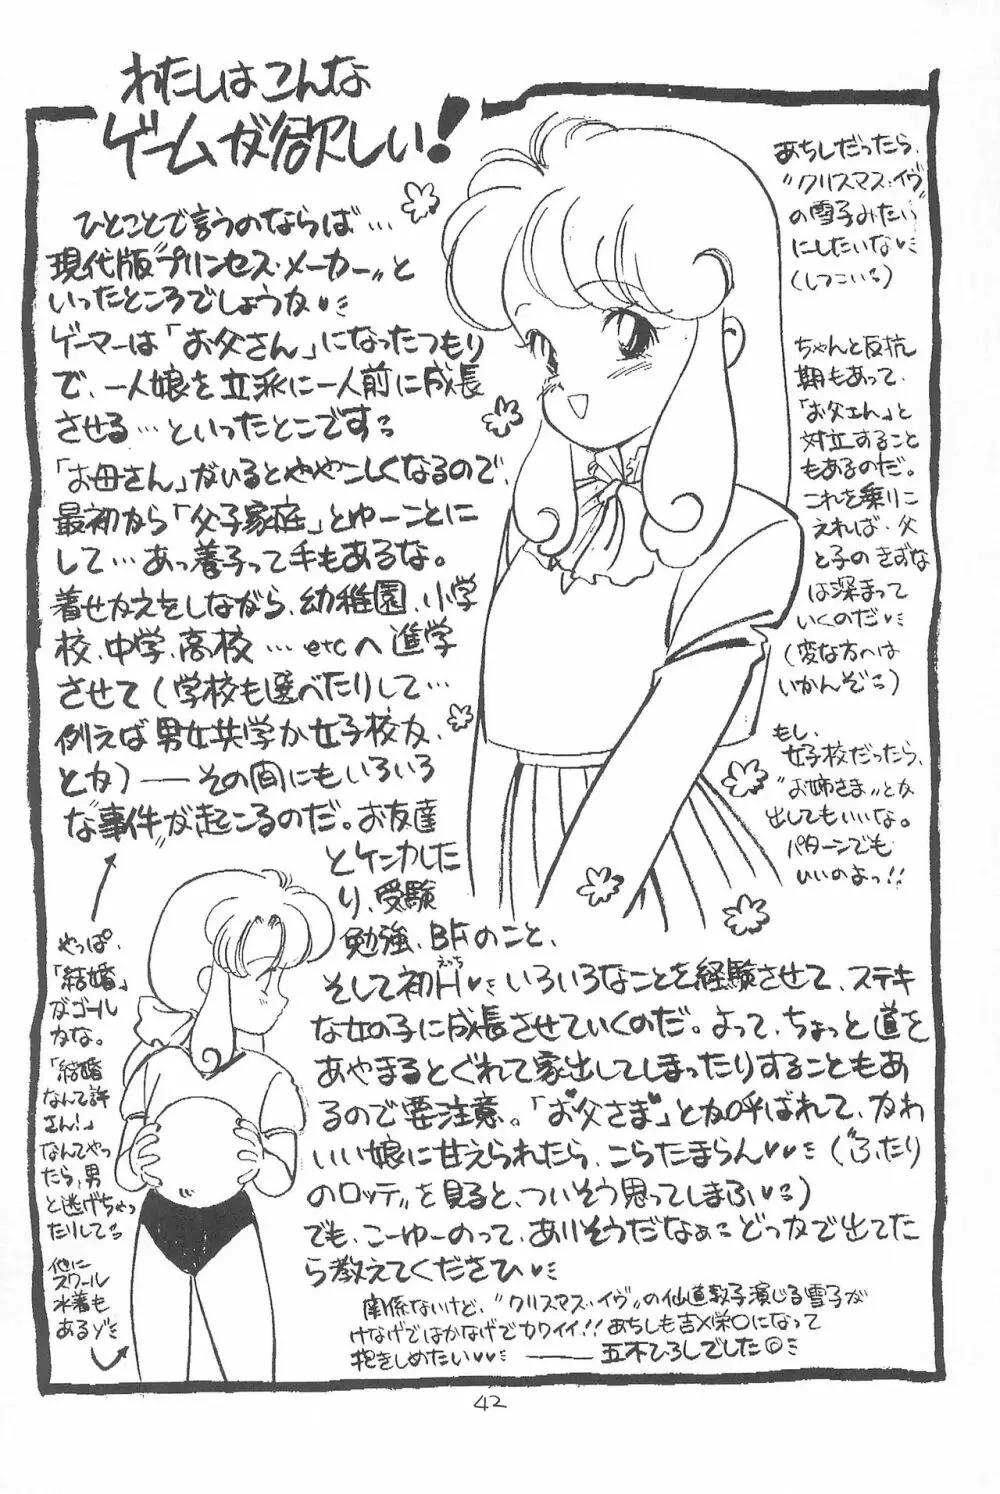 わたしはこんな
ゲームが欲しい!
ひとことで言うのならば…
現代版"プリンセス・メーカー"と
いったところでしょうか♥
ゲーマーは「お父さん」になったつもり
で、一人娘を立派に一人前に成長
させる…といったとこです
「お母さん」がいるとややこしくなるので、
最初から「父子家庭」とゆーことに
して…あっ養子って手もあるな。
着せかえをしながら、幼稚園、小学
校、中学、高校…etcへ進学
させて(学校も選べたりして…
例えば男女共学か女子校か、
とか)――その間にもいろいろ
な"事件"が起こるのだ。お友達
とケンカした
り、受験
勉強、BFのこと、
そして初H(えっち)♥いろいろなことを経験させて、ステキ
な女の子に成長させていくのだ。よって、ちょっと道を
あやまるとぐれて家出してしまったりすることもあ
るので要注意。「お父さま」とか呼ばれて、かわ
いい娘に甘えられたら、こらたまらん♥♥("ふたり
のロッテ"を見ると、ついそう思ってしまふ♥)
でも、こーゆーのって、ありそうだなぁ どっかで出てた
ら教えてくださひ♥
関係ないけど、"クリスマス・イヴ"の仙道敦子演じる雪子が
けなげではかなげでカワイイ!!あちしも吉×栄〇になって
抱きしめたい♥♥――五木ひろしでした
あちしだったら、
"クリスマス・イヴ"
の雪子みたい
にしたいな♥
(しつこい)
ちゃんと反抗
期もあって、
「お父さん」と
対立すること
もあるのだ。
これを乗りこ
えれば、父
と子のきずな
は深まって
いくのだ♥
(変な方へは
いかんぞ)
もし、
女子校だったら、
"お姉さま"とか
出してもいいな。
パターンでも
いいのよっ!!
やっぱ、
「結婚」
がゴール
かな。
「結婚
なんて許
さん!」
なんてやっ
たら、男
と逃げちゃっ
たりして
他に
スクール
水着も
あるゾ
42